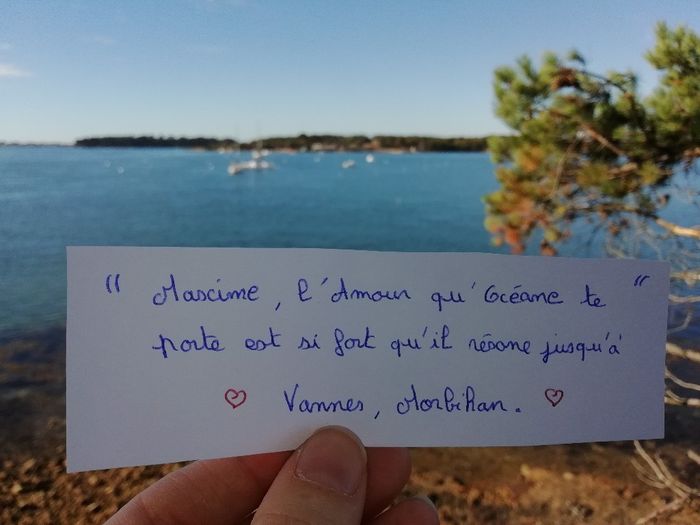 " Maxime, l'Amour qu'Océane te "
porte est si fort qu'il résone jusqu'à
♡ Vannes, Morbihan. ♡